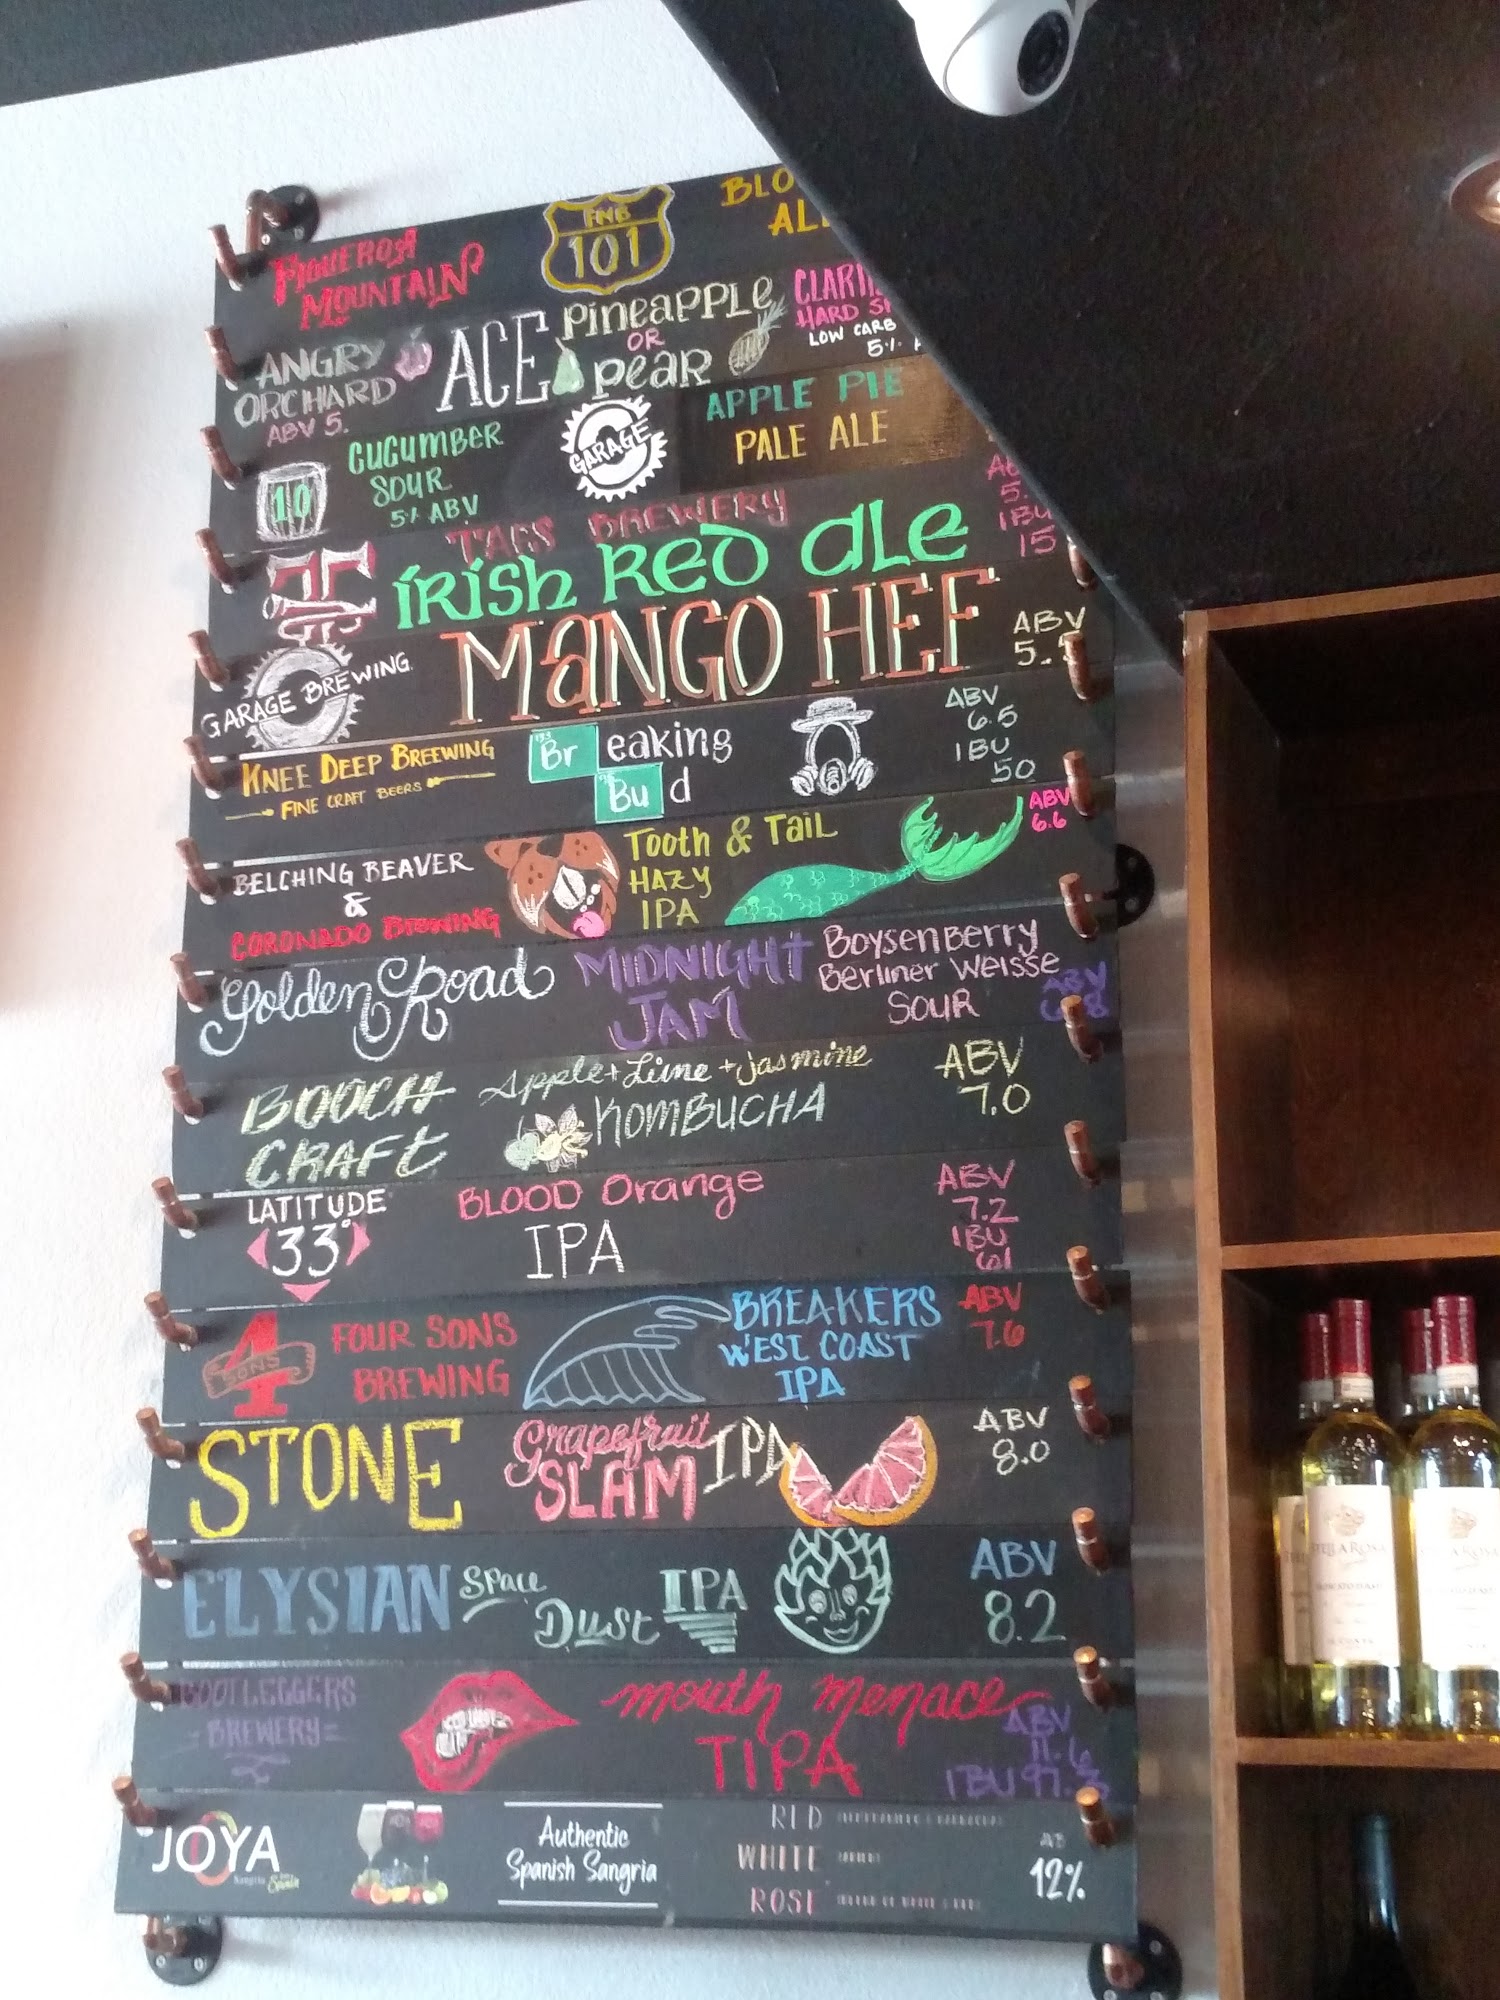 FIGUEROA
MOUNTAIN
FMB
101
ANGRY
ORCHARD
ABV 5.
ACE
PINEAPPLE
OR
PEAR
HARD
LOW CARB
5%
10
CUCUMBER
SOUR
5% ABV
GARAGE
APPLE PIE
PALE ALE
TAPS BREWERY
IRISH RED ALE
IBU
15
GARAGE BREWING
MANGO HEF
ABV
KNEE DEEP BREEWING
FINE CRAFT BEERS
Breaking
Bud
ABV
6.5
IBU
50
BELCHING BEAVER
&
CORONADO BREWING
Tooth & Tail
HAZY
IPA
ABV
6.6
Golden Road
MIDNIGHT
JAM
Boysenberry
Berliner Weisse
SOUR
ABV
BOOCH
CRAFT
Apple + Lime + Jasmine
KOMBUCHA
ABV
7.0
LATITUDE
33°
BLOOD Orange
IPA
ABV
7.2
IBU
61
4
SONS
FOUR SONS
BREWING
BREAKERS
WEST COAST
IPA
ABV
7.6
STONE
Grapefruit
SLAM IPA
ABV
8.0
ELYSIAN
Space
Dust
IPA
ABV
8.2
BOOTLEGGERS
BREWERY
mouth menace
TIPA
ABV
11.6
IBU 97.3
JOYA
Sangria
Spain
Authentic
Spanish Sangria
RED
WHITE
ROSE
12%
STELLA ROSA